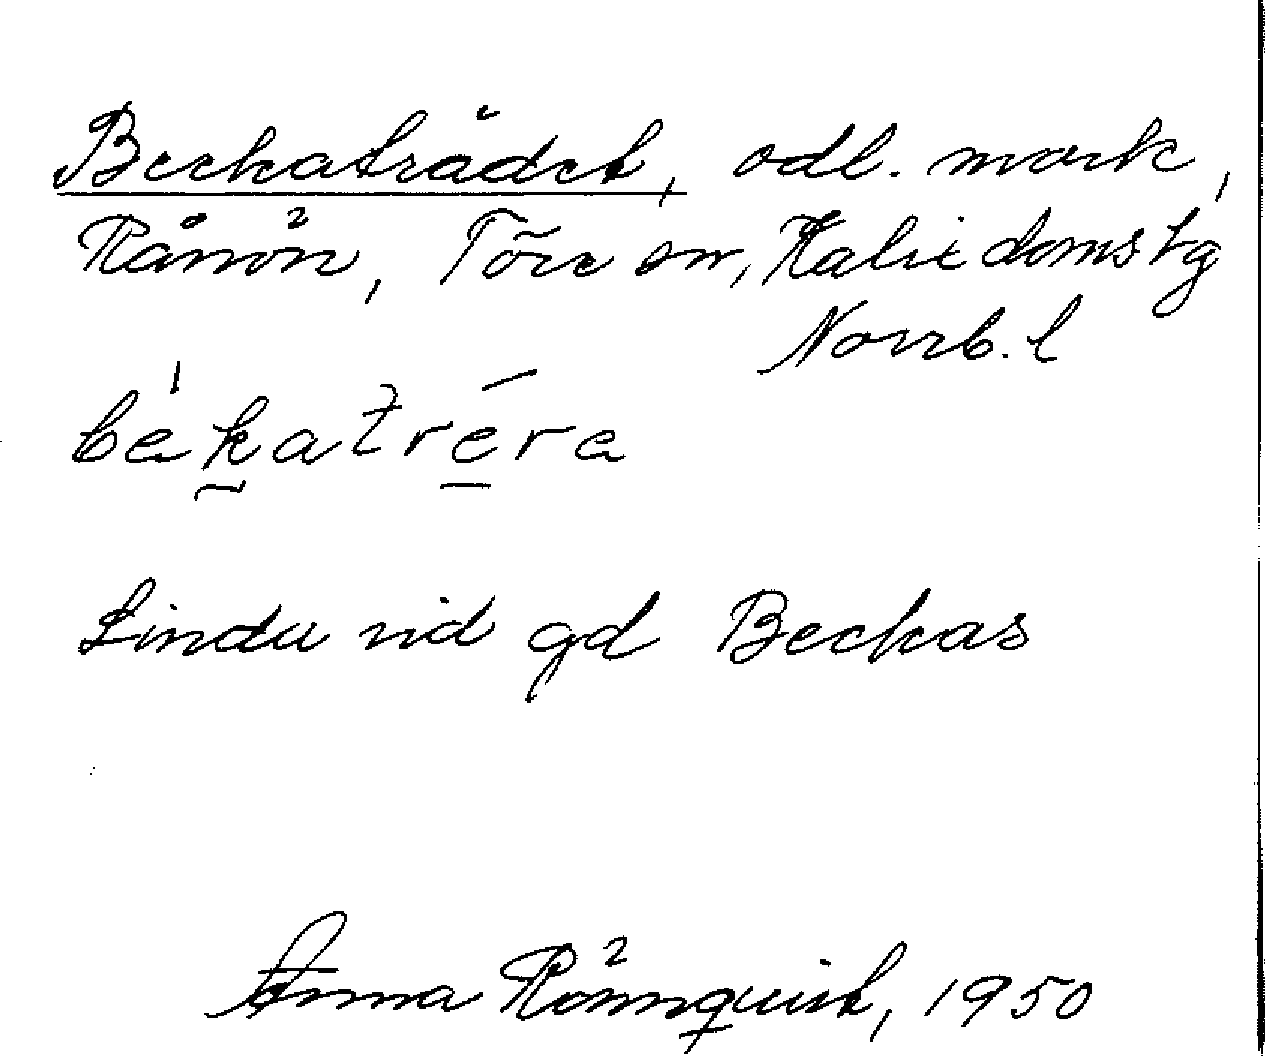 Beckaträdet, odl. mark,
Rånön, Töre sn, Kalix domstg
Norrb. l
bèka t rér e
Linda vid gd Beckas
Anna Rönnquist, 1950